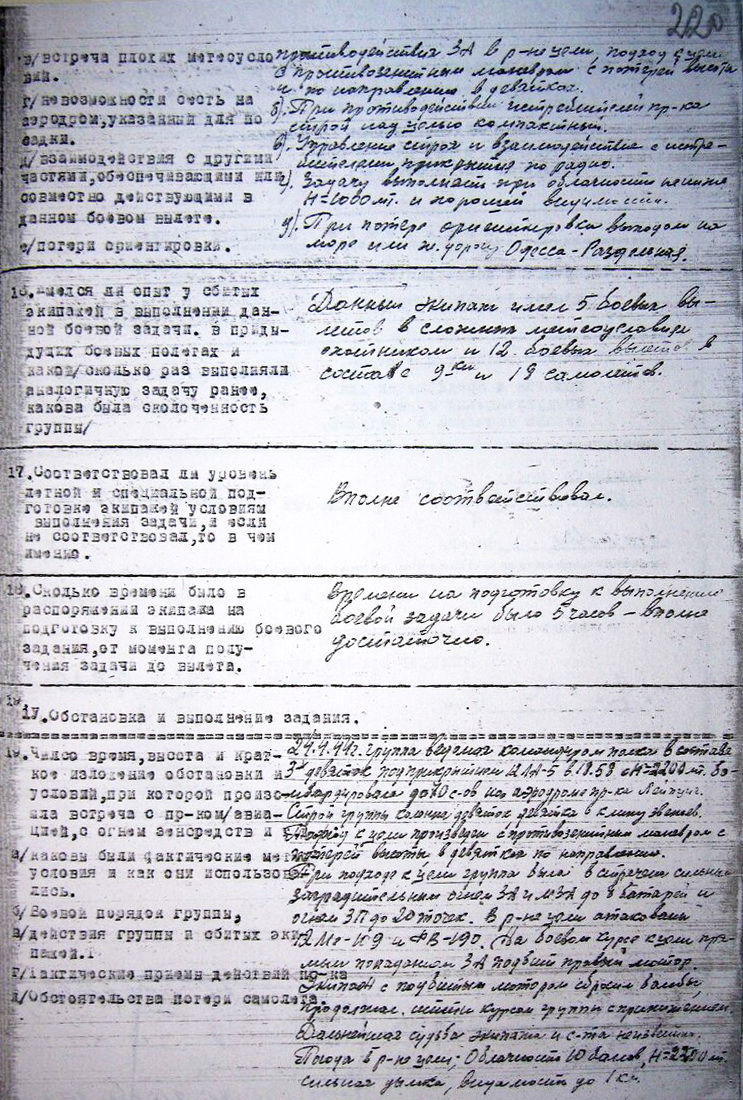 220
в/встреча плохих метеусло
вий.
г/невозможности сесть на
аэродром,указанный для по
садки.
д/взаимодействия с другими
частями,обеспечивающими или
совместно действующими в
данном боевом вылете.
е/потери ориентировки.
противодействия ЗА в р-не цели, подход к цели
с противозенитным маневром с потерей высота
и по направлению в девятках.
б). При противодействии истребителей пр-ка
строй над целью компактный.
в). Управление строя и взаимодействие с истре-
бителями прикрытия по радио.
г). Задачу выполнять при облачности не ниже
Н=1000 мт. и хорошей видимости.
д). При потере ориентировки выходом на
море или ж. дорогу Одесса-Раздельная.
16.Имелся ли опыт у сбитых
экипажей в выполнении дан-
ной боевой задачи. В преды-
дущих боевых полетах и
какой/сколько раз выполняли
аналогичную задачу ранее,
какова была сколоченность
группы/
Данный экипаж имел 5 боевых вы-
летов в сложных метеоусловиях
охотником и 12 боевых вылетов в
составе 9ки и 19 самолетов.
17.Соответствовал ли уровень
летной и специальной под-
готовке экипажей условиям
выполнения задачи,и если
не соответствовал,то в чем
именно.
Вполне соответствовал.
18.Сколько времени было в
распоряжении экипажа на
подготовку к выполнению боевого
задания,от момента полу-
чения задачи до вылета.
Времени на подготовку к выполнению
боевой задачи было 5 часов – вполне
достаточно.
17.Обстановка и выполнение задания.
19.Число время,высота и крат-
кое изложение обстановки и
условий,при которой произо-
шла встреча с пр-ком/авиа-
цией,с огнем зенсредств и
а/каковы были фактические мет
условия и как они использова-
лись.
б/Боевой порядок группы,
в/действия группы и сбитых эки-
пажей.
г/Тактические приемы действий пр-ка
д/Обстоятельства потери самолета.
группа ведомая командиром полка в составе
3х девяток под прикрытием 12 ЛА-5 в 18.58 с Н=2200 мт. бо-
мбардировала до с-ов на аэродроме пр-ка Лейпциг.
Строй группы колонна девяток девятка в клину звеньев.
Подход к цели произведен с противозенитным маневром с
потерей высоты в девятках по направлению.
При подходе к цели группа была встречена сильным
заградительным огнем ЗА и МЗА до 8 батарей и
огнем ЗП до 20 точек. В р-не цели атакованы
12 Ме-109 и ФВ-190. На боевом курсе к цели пря-
мым попаданием ЗА подбит правый мотор
Экипаж с подбитым мотором сбросил бомбы,
продолжал идти курсом группы с принижением
Дальнейшая судьба экипажа и с-та неизвестна.
Погода в р-не цели: Облачность 10 балов, Н=2200 мт.
сильная дымка, видимость до 1 км.